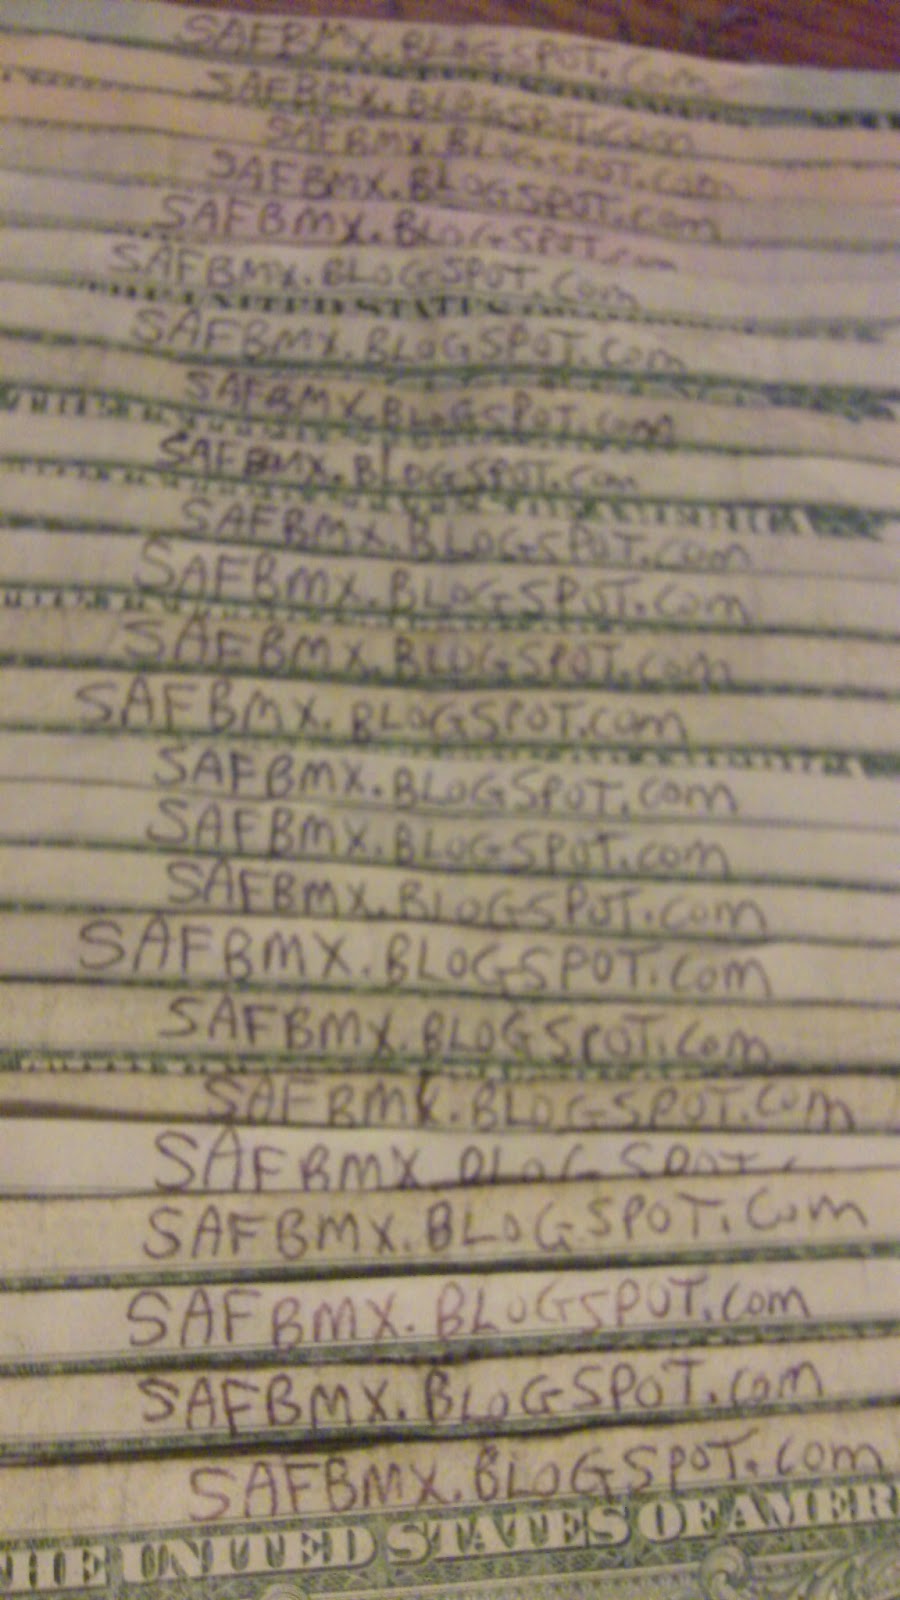 SAFBMX.BLOGSPOT.Com
SAFBMX.BLOGSPOT.Com
SAFBMX.BLOGSPOT.Com
SAFBMX.BLOGSPOT.Com
SAFBMX.BLOGSPOT.Com
SAFBMX.BLOGSPOT.Com
THE UNITED STATES
SAFBMX.BLOGSPOT.Com
SAFBMX.BLOGSPOT.Com
SAFBMX.BLOGSPOT.Com
SAFBMX.BLOGSPOT.Com
SAFBMX.BLOGSPOT.Com
SAFBMX.BLOGSPOT.Com
SAFBMX.BLOGSPOT.Com
SAFBMX.BLOGSPOT.Com
SAFBMX.BLOGSPOT.Com
SAFBMX.BLOGSPOT.Com
SAFBMX.BLOGSPOT.Com
SAFBMX.BLOGSPOT.Com
SAFBMX.BLOGSPOT.Com
SAFBMX.BLOGSPOT.
SAFBMX.BLOGSPOT.Com
SAFBMX.BLOGSPOT.Com
SAFBMX.BLOGSPOT.Com
SAFBMX.BLOGSPOT.Com
HE UNITED STATES OF AMER